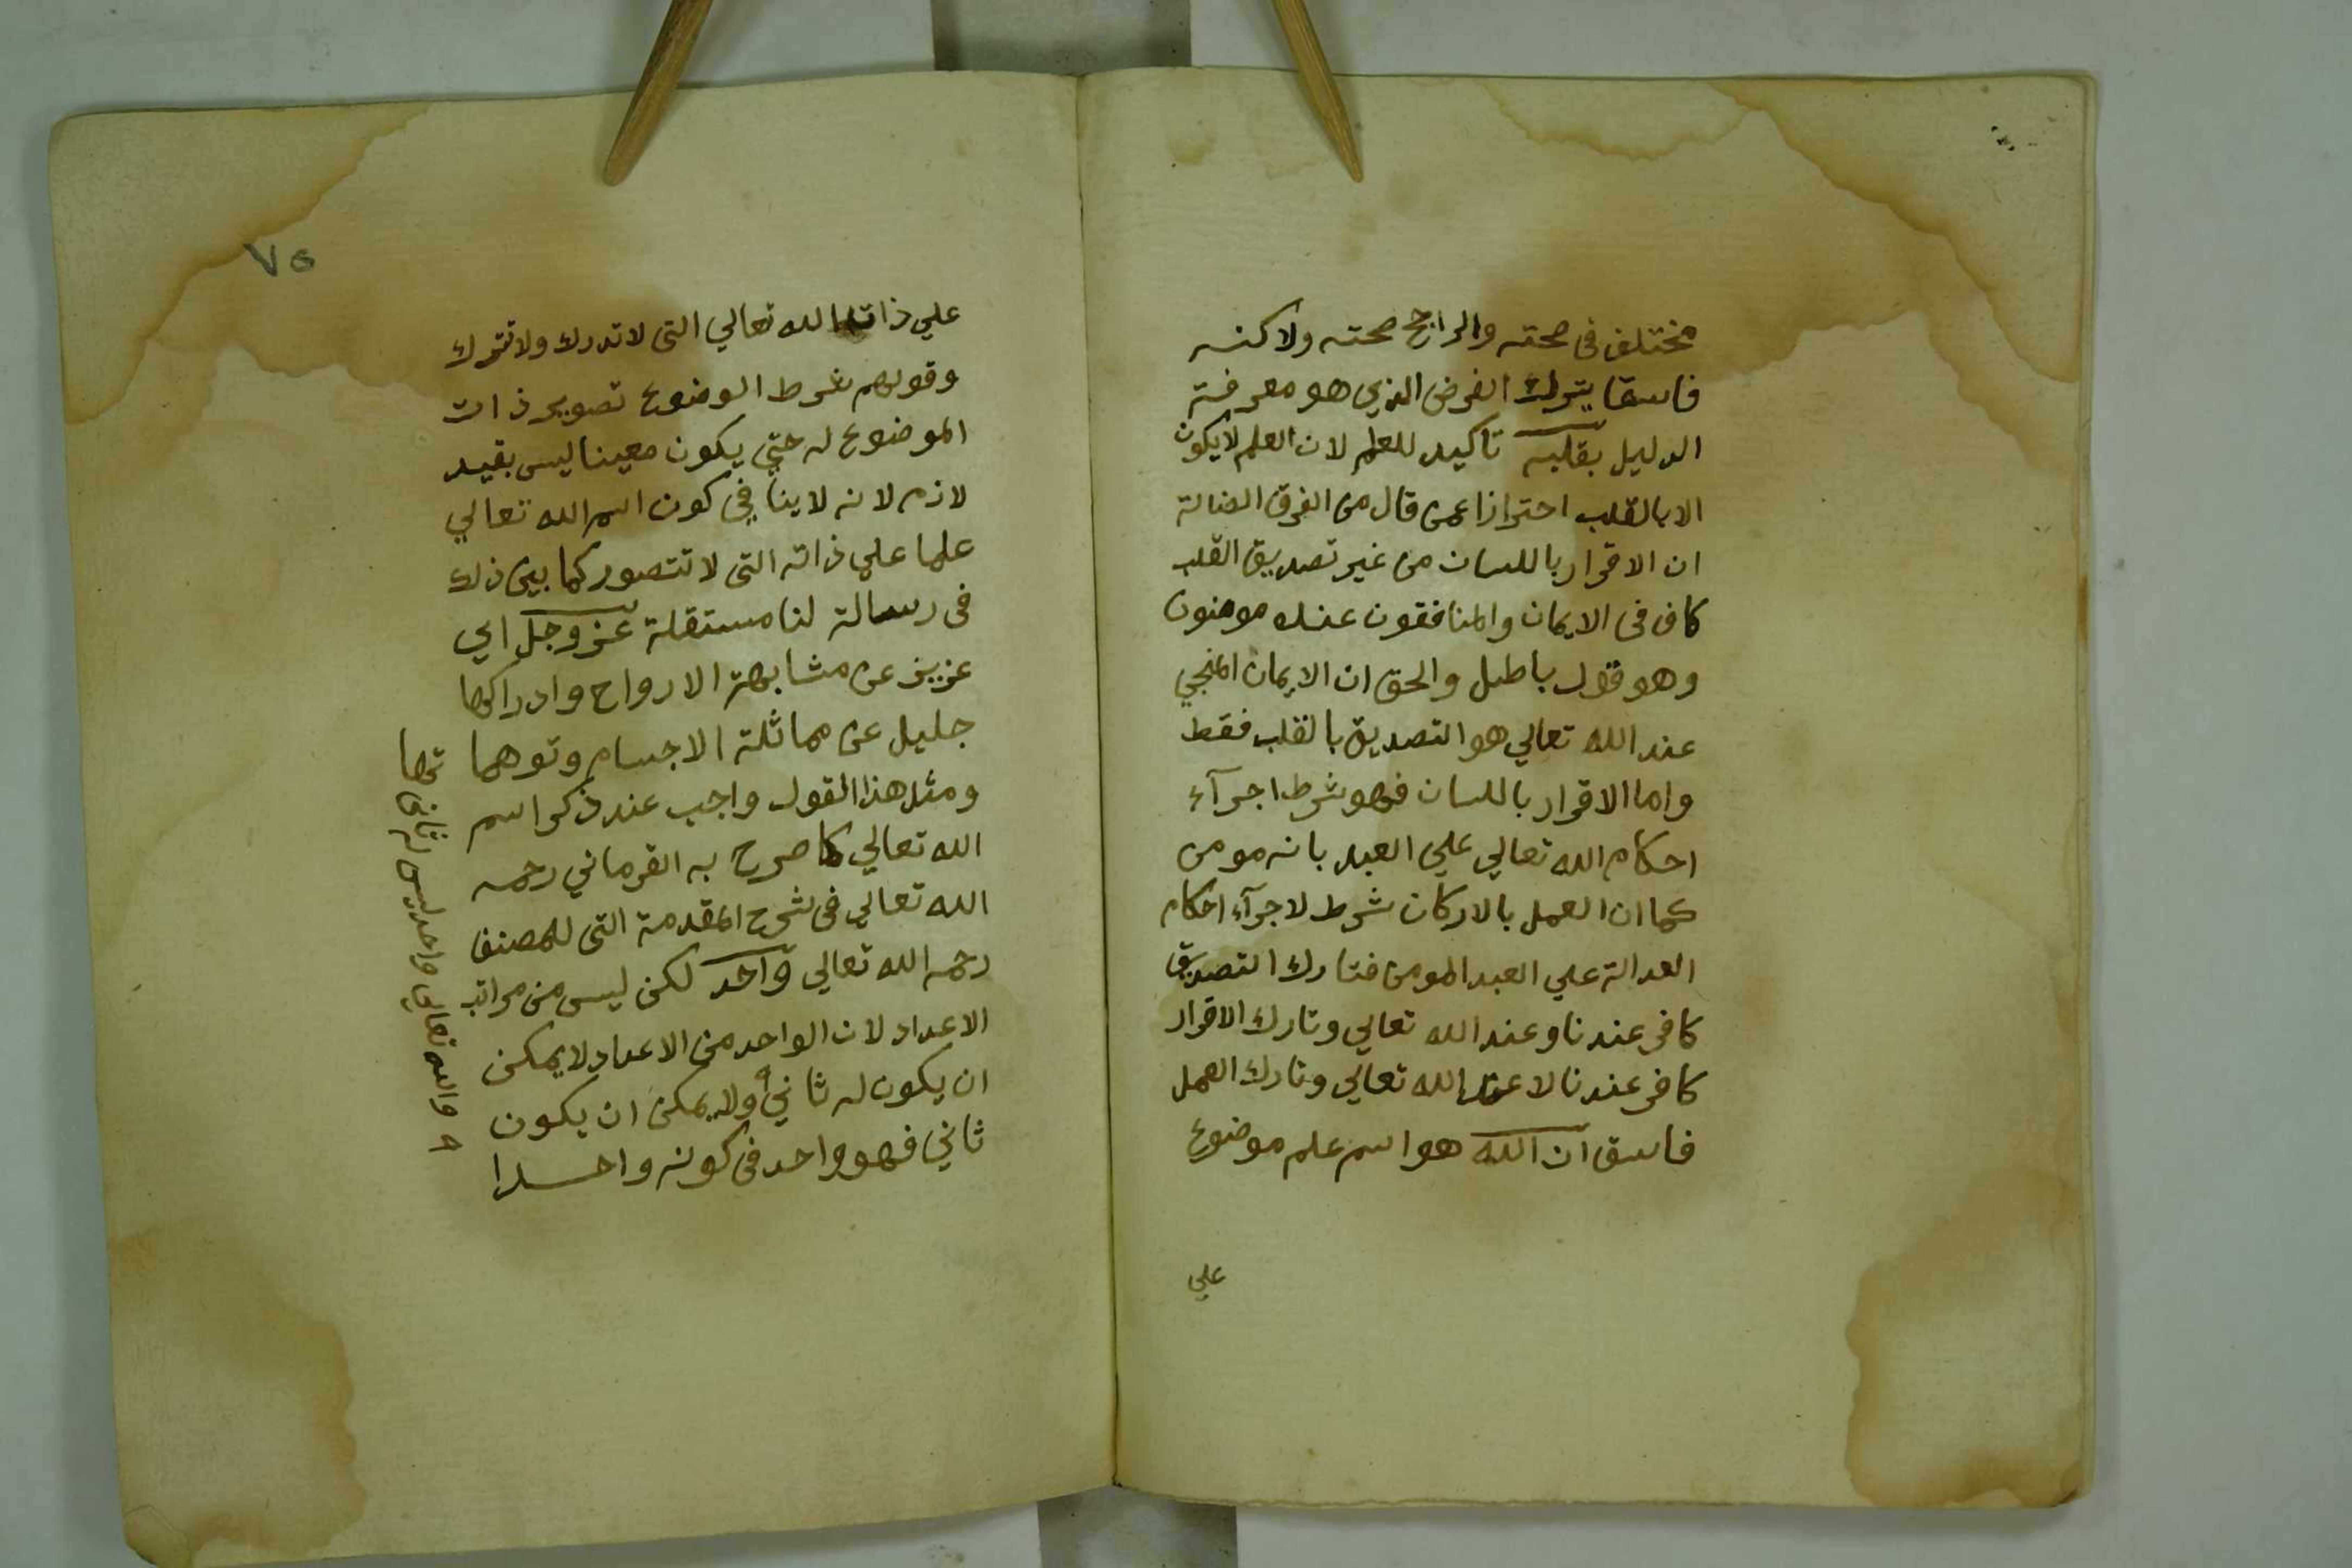 مختلف فى صحته والراجح صحته ولاكنه
فاسقا يترك الفرض الذي هو معرفة
الدليل بقلبه تاكيد للعلم لان العلم لا يكون
الا بالقلب احترازا عمن قال من الفرق الضالة
ان الاقرار باللسان من غير تصديق القلب
كاف فى الايمان والمنافقون عنده مومنون
وهو قول باطل والحق ان الايمان المنجي
عند الله تعالي هو التصديق بالقلب فقط
واما الاقرار باللسان فهو شرط اجرآء
احكام الله تعالي علي العبد بانه مومن
كما ان العمل بالاركان شرط لاجرآء احكام
العدالة علي العبد المومن فتارك التصديق
كافر عندنا وعند الله تعالي وتارك الاقرار
كافر عندنا لا عند الله تعالي وتارك العمل
فاسق ان الله هو اسم علم موضوع
علي
٧٥
علي ذات الله تعالي التى لا تدرك ولا تترك
وقولهم شرط الوضوع تصوير ذات
الموضوع له حتي يكون معينا ليس بقيد
لازم لانه لا ينافي كون اسم الله تعالي
علما علي ذاته التى لا تتصور كما بين ذلك
فى رسالة لنا مستقلة عز وجل اي
عزيز عن مشابهة الارواح وادراكها
جليل عن مماثلة الاجسام وتوهما تها
ومثل هذا القول واجب عند ذكر اسم
الله تعالي كما صرح به القرماني رحمه
الله تعالي فى شرح المقدمة التى للمصنف
رحمه الله تعالي واحد لكن ليس من مراتب
الاعداد لان الواحد من الاعداد لا يمكن
ان يكون له ثاني ولا يمكن ان يكون
ثاني فهو واحد فى كونه واحدا
والله تعالي واحد ليس له ثاني